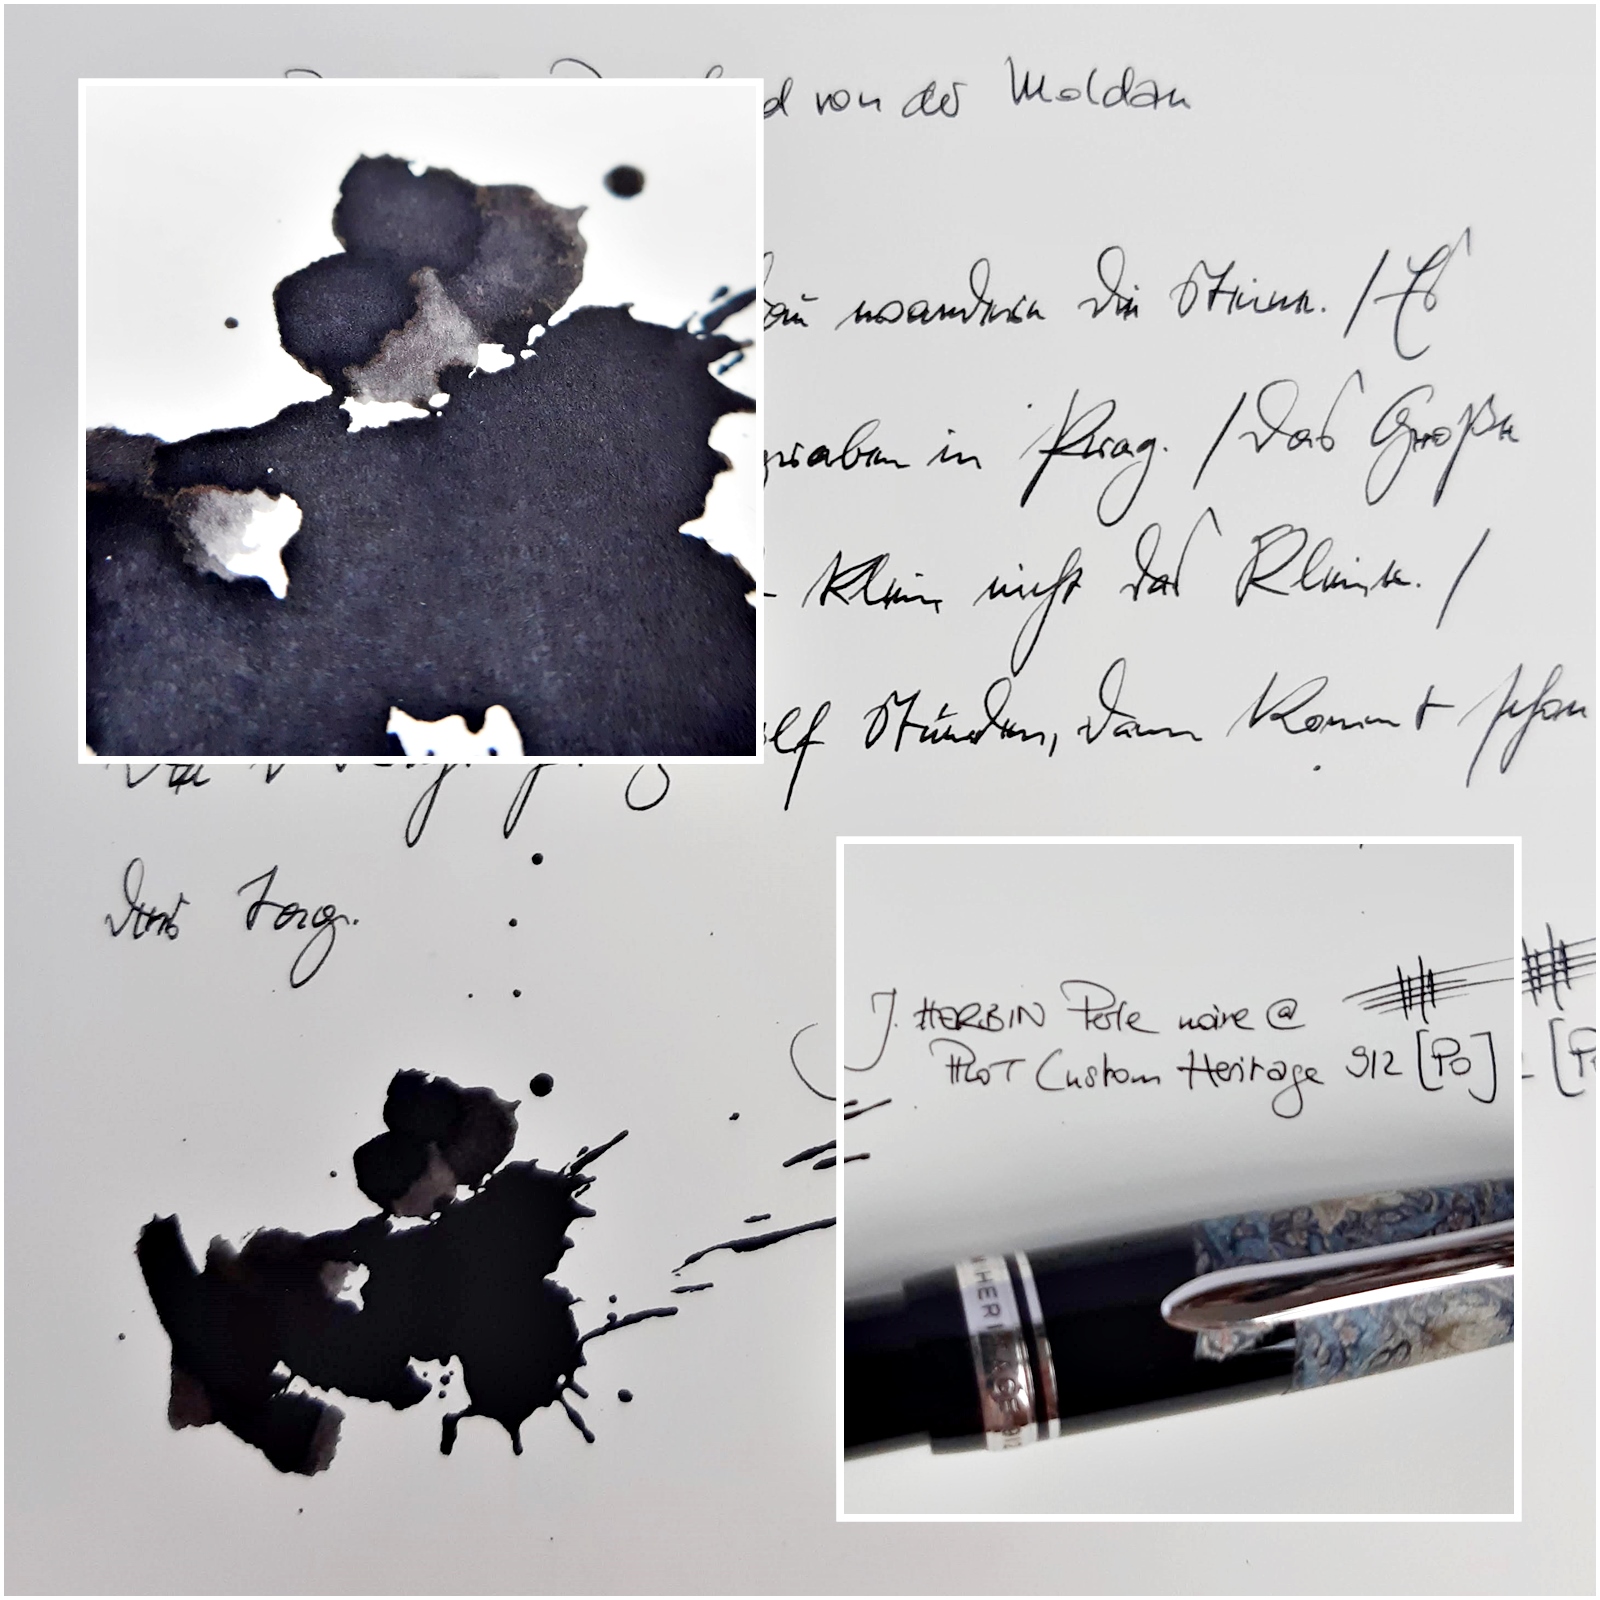 von der Moldau
wandern die Steine. / Es
in Prag. / Das Große
klein nicht das Kleine. /
Stunden, dann kommt schon
der Tag.
J. HERBIN Perle noire @
PILOT Custom Heritage 912 [PO]
HERITAGE 912